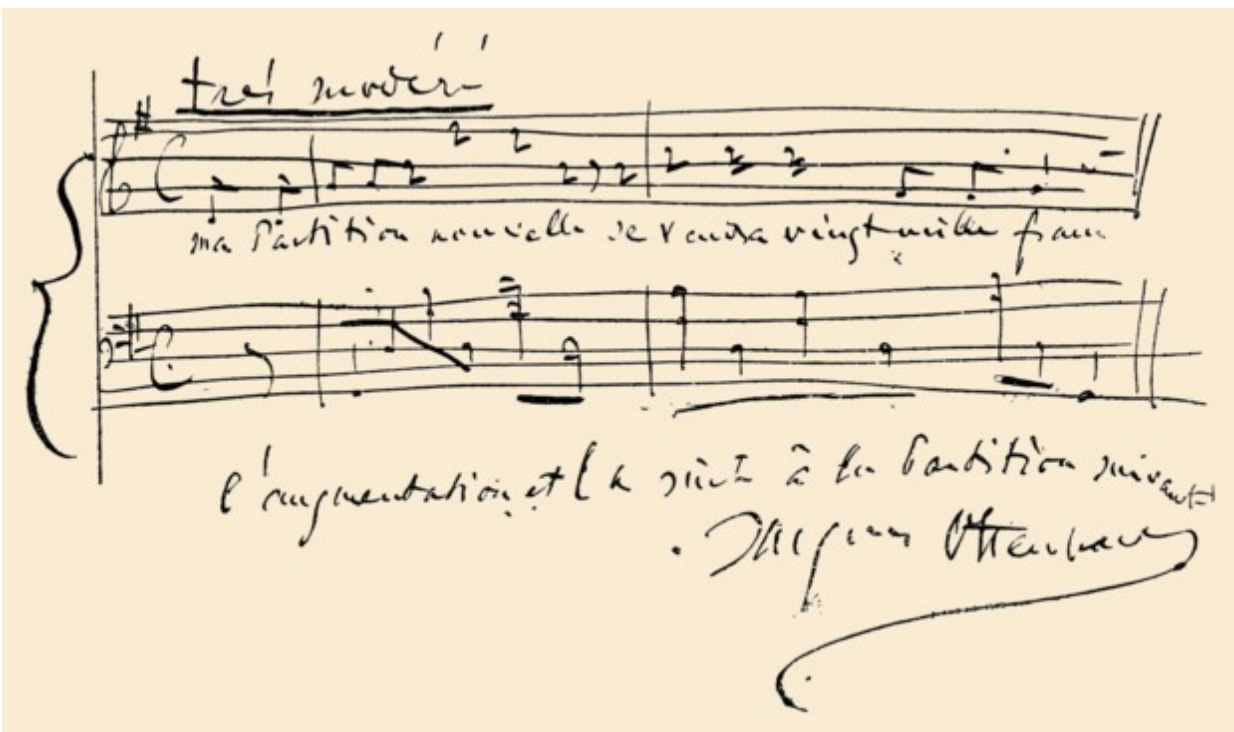 très modéré
ma Partition nouvelle se vendra vingt mille francs
l'augmentation et la suite à la Partition suivante
Jacques Offenbach